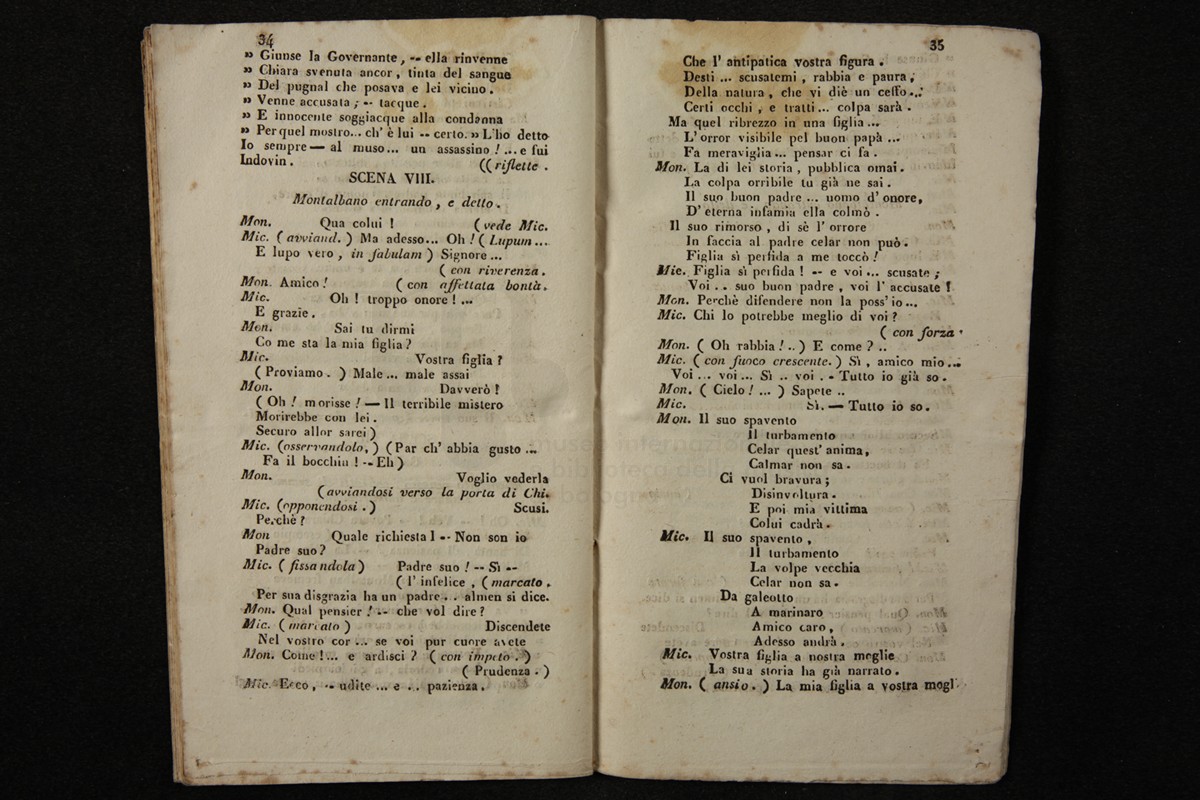 34
» Giunse la Governante, -- ella rinvenne
» Chiara svenuta ancor, tinta del sangue
» Del pugnal che posava e lei vicino.
» Venne accusata; -- tacque.
» E innocente soggiacque alla condanna
» Per quel mostro... ch' è lui -- certo. » L'ho detto
Io sempre — al muso... un assassino!... e fui
Indovin. (( riflette.
SCENA VIII.
Montalbano entrando, e detto.
Mon. Qua colui! ( vede Mic.
Mic. ( avviand. ) Ma adesso... Oh! ( Lupum...
E lupo vero, in fabulam ) Signore...
( con riverenza.
Mon. Amico! ( con affettata bontà.
Mic. Oh! troppo onore!...
E grazie.
Mon. Sai tu dirmi
Co me sta la mia figlia?
Mic. Vostra figlia?
( Proviamo. ) Male... male assai
Mon. Davverò!
( Oh! morisse! — Il terribile mistero
Morirebbe con lei.
Securo allor sarei )
Mic. (osservandolo,) (Par ch' abbia gusto...
Fa il bocchin! -- Eh)
Mon. Voglio vederla
(avviandosi verso la porta di Chi.
Mic. (opponendosi.) Scusi.
Perchè?
Mon Quale richiesta! -- Non son io
Padre suo?
Mic. ( fissandola) Padre suo! -- Sì --
( l' infelice, ( marcato.
Per sua disgrazia ha un padre.. almen si dice.
Mon. Qual pensier! -- che vol dire?
Mic. ( marcato ) Discendete
Nel vostro cor... se voi pur cuore avete
Mon. Come!... e ardisci? ( con impeto.)
( Prudenza. )
Mic. Ecco, -- udite... e.. pazienza.
35
Che l' antipatica vostra figura.
Desti... scusatemi, rabbia e paura,
Della natura, che vi diè un ceffo...
Certi occhi, e tratti... colpa sarà.
Ma quel ribrezzo in una figlia...
L' orror visibile pel buon papà...
Fa meraviglia... pensar ci fa.
Mon. La di lei storia, pubblica omai.
La colpa orribile tu già ne sai.
Il suo buon padre... uomo d' onore,
D' eterna infamia ella colmò.
Il suo rimorso, di sè l' orrore
In faccia al padre celar non può.
Figlia sì perfida a me toccò!
Mic. Figlia sì perfida! -- e voi... scusate;
Voi.. suo buon padre, voi l' accusate!
Mon. Perchè difendere non la poss' io...
Mic. Chi lo potrebbe meglio di voi?
( con forza
Mon. ( Oh rabbia!.. ) E come?..
Mic. ( con fuoco crescente. ) Sì, amico mio...
Voi... voi... Sì.. voi.. - Tutto io già so.
Mon. ( Cielo!... ) Sapete..
Mic. Sì. — Tutto io so.
Mon. Il suo spavento
Il turbamento
Celar quest' anima,
Calmar non sa.
Ci vuol bravura;
Disinvoltura.
E poi mia vittima
Colui cadrà.
Mic. Il suo spavento,
Il turbamento
La volpe vecchia
Celar non sa.
Da galeotto
A marinaro
Amico caro,
Adesso andrà.
Mic. Vostra figlia a nostra moglie
La sua storia ha già narrato.
Mon. ( ansio. ) La mia figlia a vostra mogl